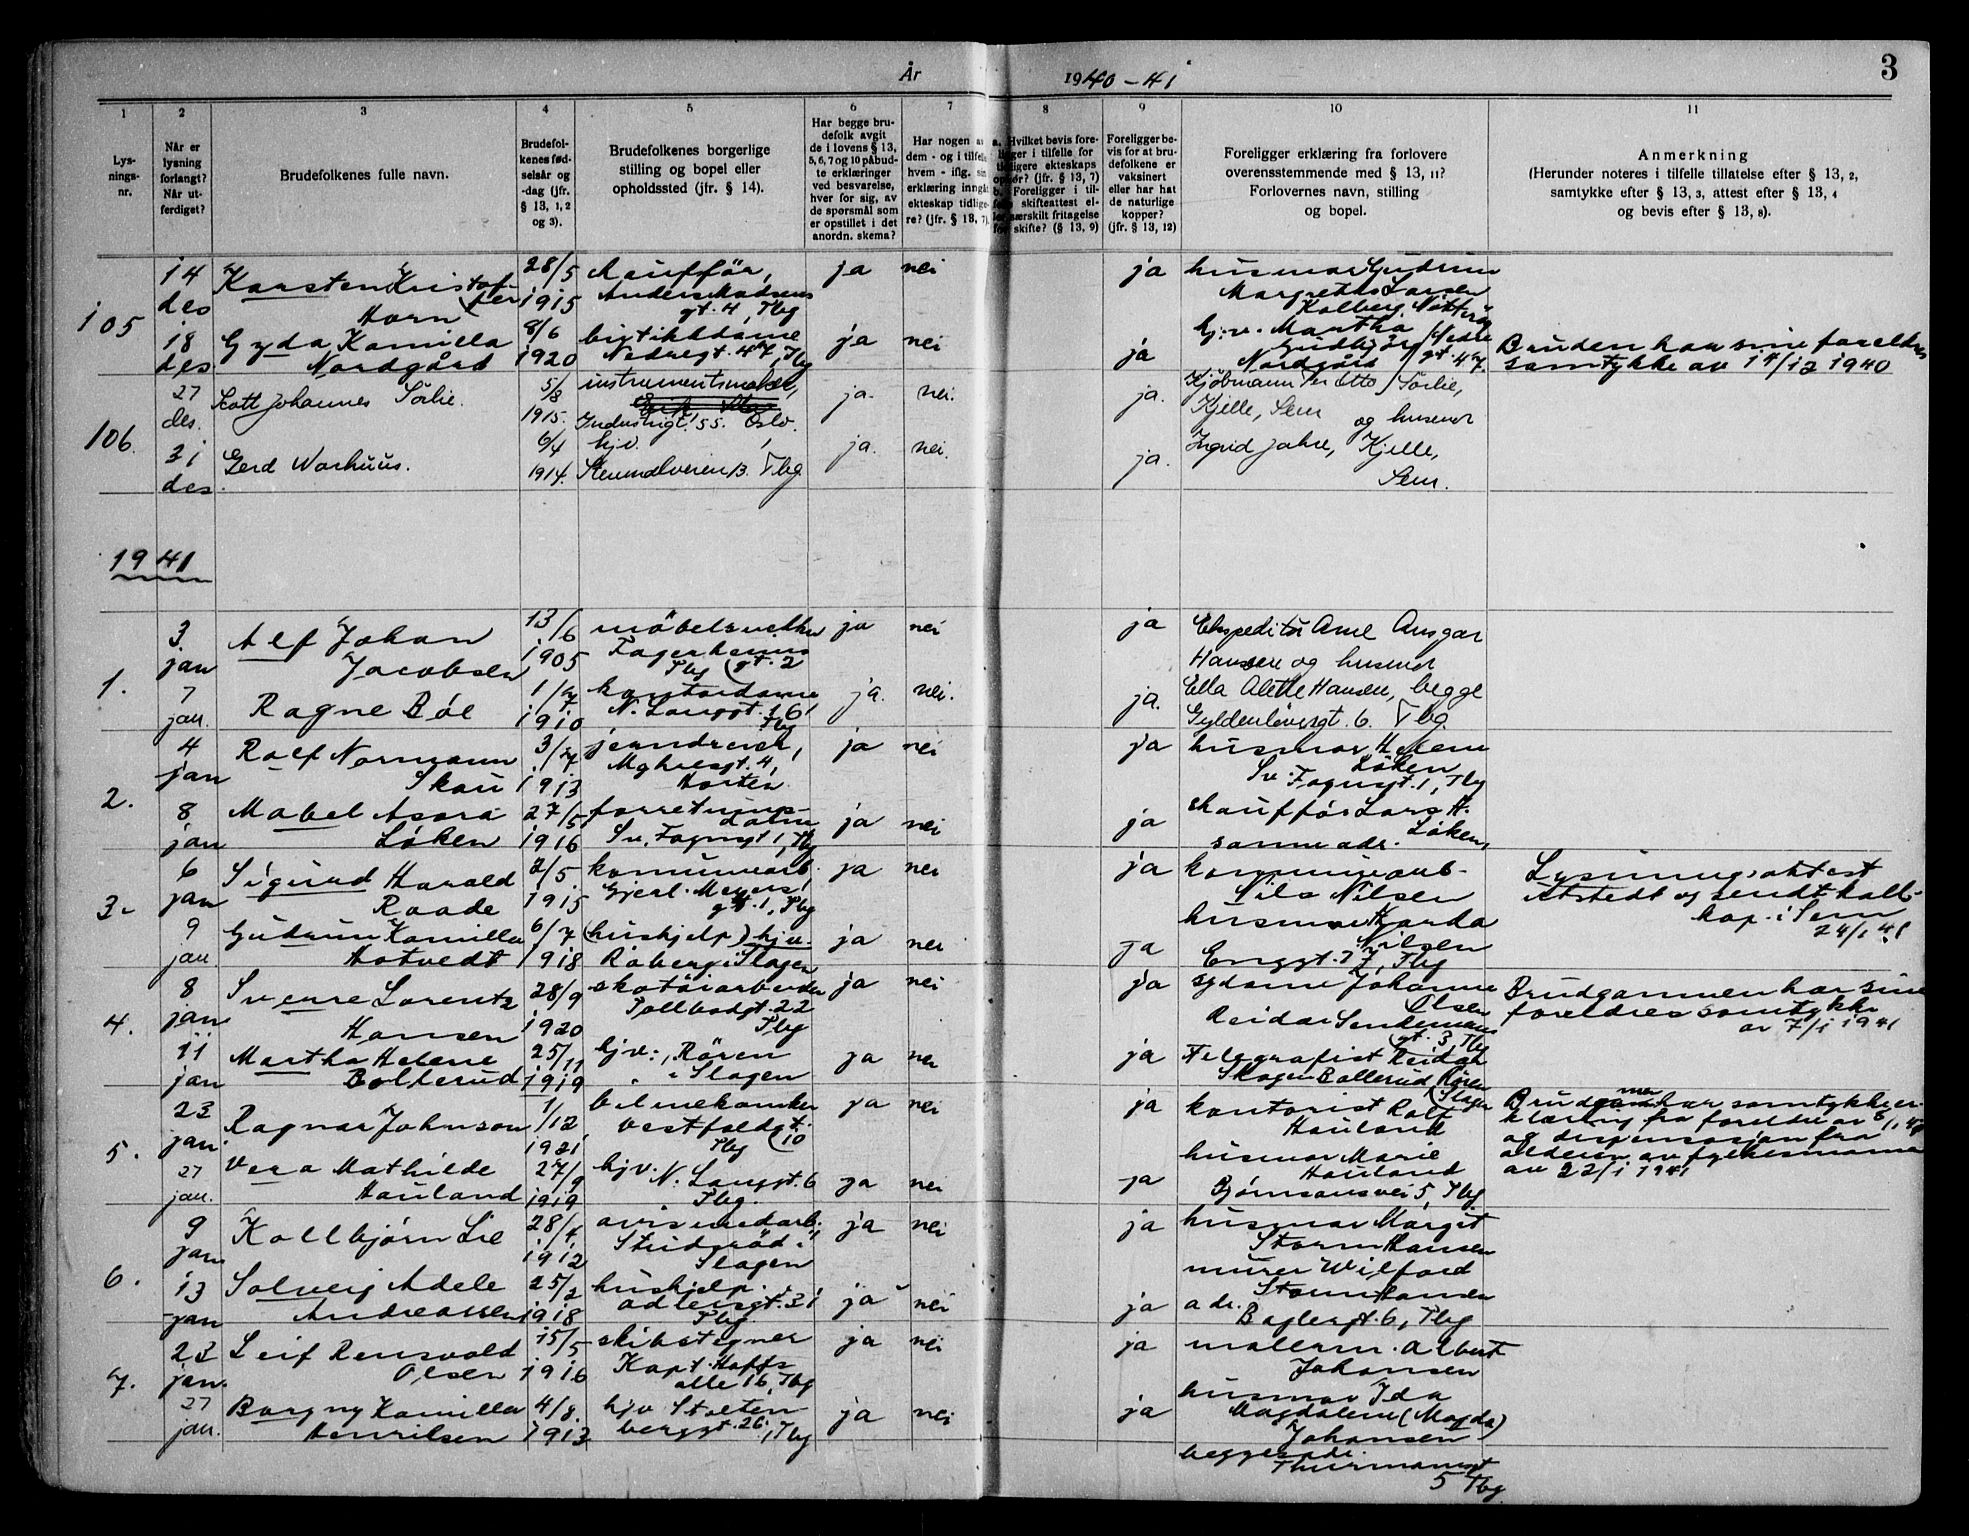 År 1940-41
3
1 2 3 4 5 6 7 8 9 10 11
Lys-
nings-
nr.
Når er
lysning
forlangt?
Når ut-
ferdiget?
Brudefolkenes fulle navn.
Brudefol-
kenes fød-
selsår og
-dag (jfr.
§ 13, 1, 2
og 3).
Brudefolkenes borgerlige
stilling og bopel eller
opholdssted (jfr. § 14).
Har begge bru-
defolk avgit
de i lovens § 13,
5, 6, 7 og 10 påbud-
te erklæringer
ved besvarelse,
hver for sig, av
de spørsmål som
er opstillet i det
anordn. skema?
Har nogen av
dem - og i tilfelle
hvem - iflg. sin
erklæring inngått
ekteskap tidlige-
re? (jfr. § 13, 7).
a. Hvilket bevis fore-
ligger i tilfelle for
tidligere ekteskaps
ophør? (jfr. § 13, 7)
b. Foreligger i til-
felle skifteattest el-
ler særskilt fritagelse
for skifte? (§ 13, 9)
Foreligger be-
vis for at bru-
defolkene er
vaksinert
eller har hat
de naturlige
kopper?
(jfr. § 13, 12)
Foreligger erklæring fra forlovere
overensstemmende med § 13, 11?
Forlovernes navn, stilling
og bopel.
Anmerkning
(Herunder noteres i tilfelle tillatelse efter § 13, 2,
samtykke efter § 13, 3, attest efter § 13, 4
og bevis efter § 13, 8).
105
14
des
Karsten Kristof-
fer
Horn
28/5
1915
Anders Madsens
gt. 4, Tbg
ja nei ja
husmor Gudrun
Margrethe Larsen
Kolberg, Nøtterøy
18
des
Gyda Kamilla
Nordgård
8/6
1920
butikkdame
Nedregt. 47, Tbg
ja nei ja
hj.v. Martha
Gudbjør
Nordgård
Nedre
gt 47.
Bruden har sine foreldres
samtykke av 17/12 1940
106.
27
des.
Scott Johannes Sörlie.
5/8
1915.
instrumentmaker,
Industrigt. 55. Oslo.
ja. nei. ja.
Kjøbmann Per Otto Sörlie,
Kjelle, Sem
og husmor
31
des.
Gerd Warhuus.
6/4
1914.
hjv.
Stenmalveien B. Tbg.
ja. nei. ja.
Ingrid Jahre, Kjelle,
Sem.
1941
1.
3
jan
Alf Johan
Jacobsen
13/6
1905
Fagerheims
gt. 2
Tbg
ja nei ja
Ekspeditør Arne Ansgar
Hansen og husmor
7
jan.
Ragne Bøe
1/7
1910
kontordame
N. Langgt. 61
Tbg
ja. nei. ja.
Ella Alette Hansen, begge
Gyldenløvesgt. 6. Tbg.
2.
4
jan
Rolf Normann
Skau
3/7
1913
jerndreier,
gt. 4,
Horten
ja nei ja
husmor Helene
Løken
Sv. Foynsgt. 1, Tbg
8
jan
Mabel Asora
Løken
27/5
1916
forretnings-
dame
Sv. Foynsgt 1, Tbg
ja nei ja
skauffør Lars H.
Løken,
samme adr.
3.
6
jan
Sigurd Harald
Raade
2/5
1915
komunearb.
Gjerl. Meyers
gt. 1, Tbg
ja nei ja
Nils Nilsen
Lysningsattest
utstedt og sendt kall-
kap. i Sem
24/1 41
9
jan
Gudrun Kamilla
Hotvedt
6/7
1918
(hushjelp) hjv.
Råberg i Slagen
ja nei ja
husmor Harda
Nilsen
Enggt. 27, Tbg
4.
8
jan
Sverre Lorentz
Hansen
28/9
1920
skotøiarbeider
Tollbodgt. 22
Tbg
ja nei ja
sydame Johanne
Olsen
Reidar Sendemans
gt. 3 Tbg
Brudgommen har sine
foreldres samtykke
av 7/1 1941
11
jan
Martha Helene
Bolterud
25/11
1919
hjv., Røren
i Slagen
ja nei ja
Telegrafist Reidar
Skogen Bollerud Røren
Slagen
5.
23
jan.
Ragnar Johnson
1/12
1921
bilmekaniker
Vestfoldgt.
10
Tbg
ja nei ja
kontorist Rolf
Hauland
Brudgommen har samtykkeer-
klæring fra foreldre av 6/1.41
og dispensasjon fra
alderen av fylkesmannen
av 22/1 1941
27
jan.
Vera Mathilde
Hauland
27/9
1919
hjv. N. Langgt. 6
Tbg
ja nei ja
husmor Marie
Hauland
Bjørnsonsvei 5, Tbg
6.
9
jan
Kollbjørn Lie
28/4
1912
avismedarb.
i
Slagen
ja nei ja
husmor Margit
Storm Hansen
13
jan
Solveig Adele
Andreassen
25/2
1918
hushjelp
Adlersgt. 31
Tbg.
ja nei ja
murer Wilford
Storm Hansen
adr.
Baglergt. 6, Tbg
7.
23
jan.
Leif Rensvold
Olsen
15/5
1916
skibstegner
Kapt. Hoffs
alle 16, Tbg
ja nei ja
malerm. Albert
Johansen
27
jan.
Borgny Kamilla
Henriksen
4/8.
1913
hjv Stolten
berggt. 26, Tbg
ja nei ja
husmor Ida
Magdalene (Magda)
Johansen
begges adr.
Thurmannsgt
5 Tbg